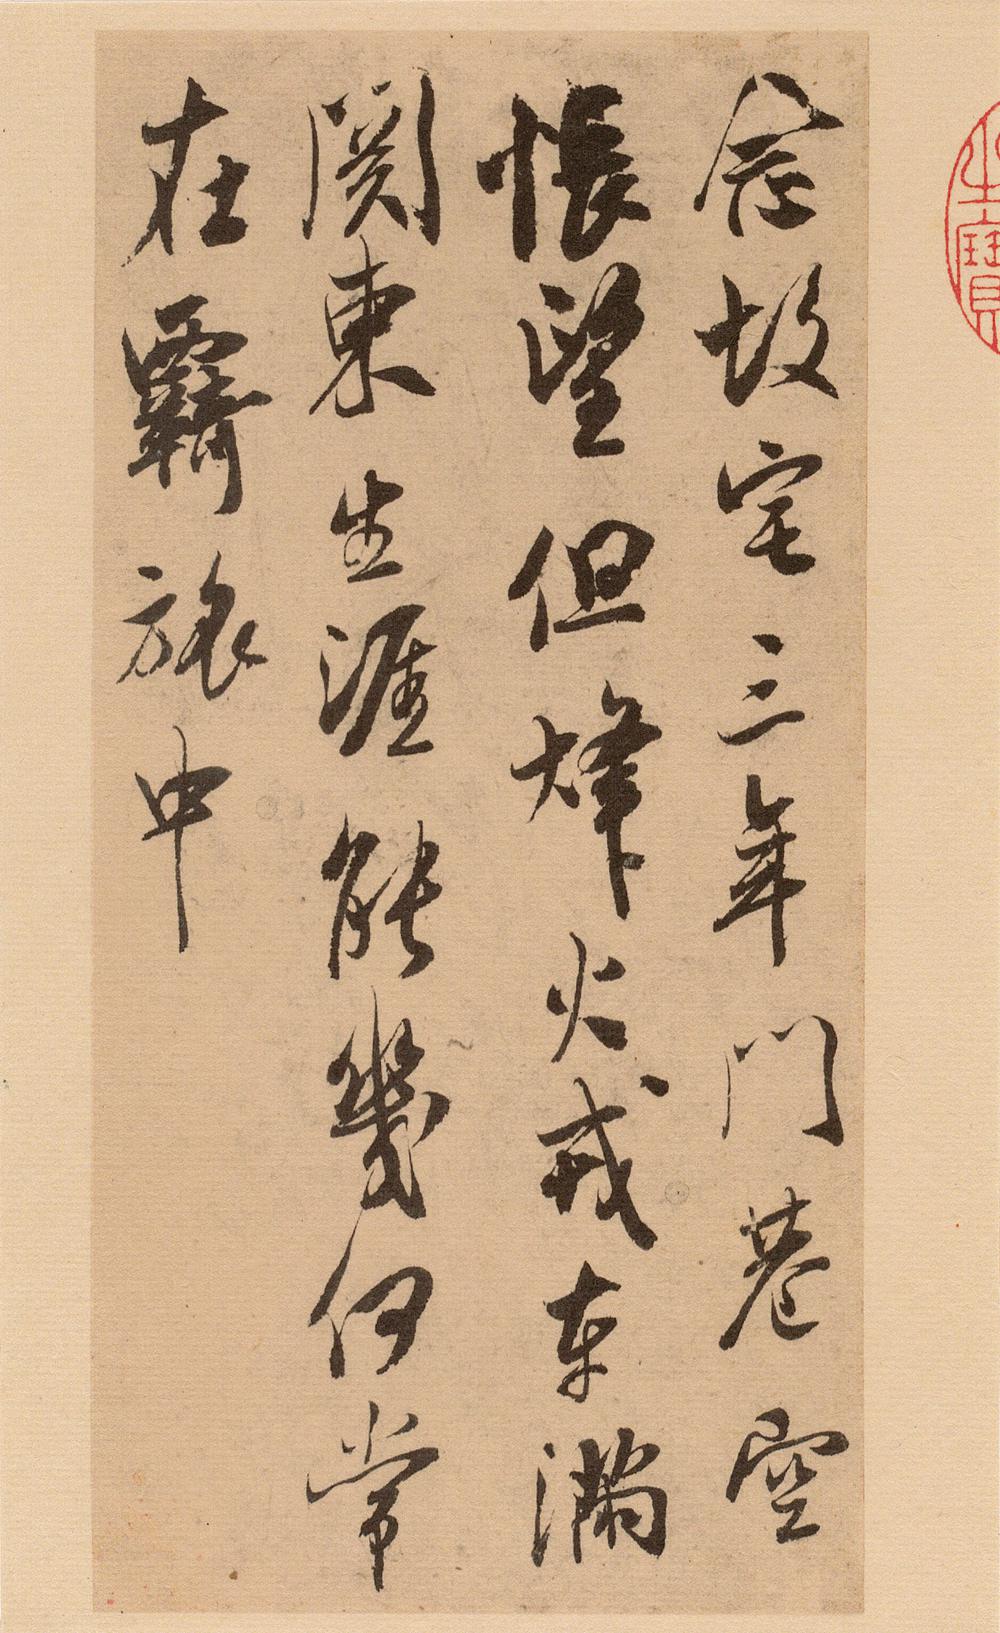 念故宅三年門巷空
悵望但烽火戎車滿
關東生涯能幾何常
在覉旅中